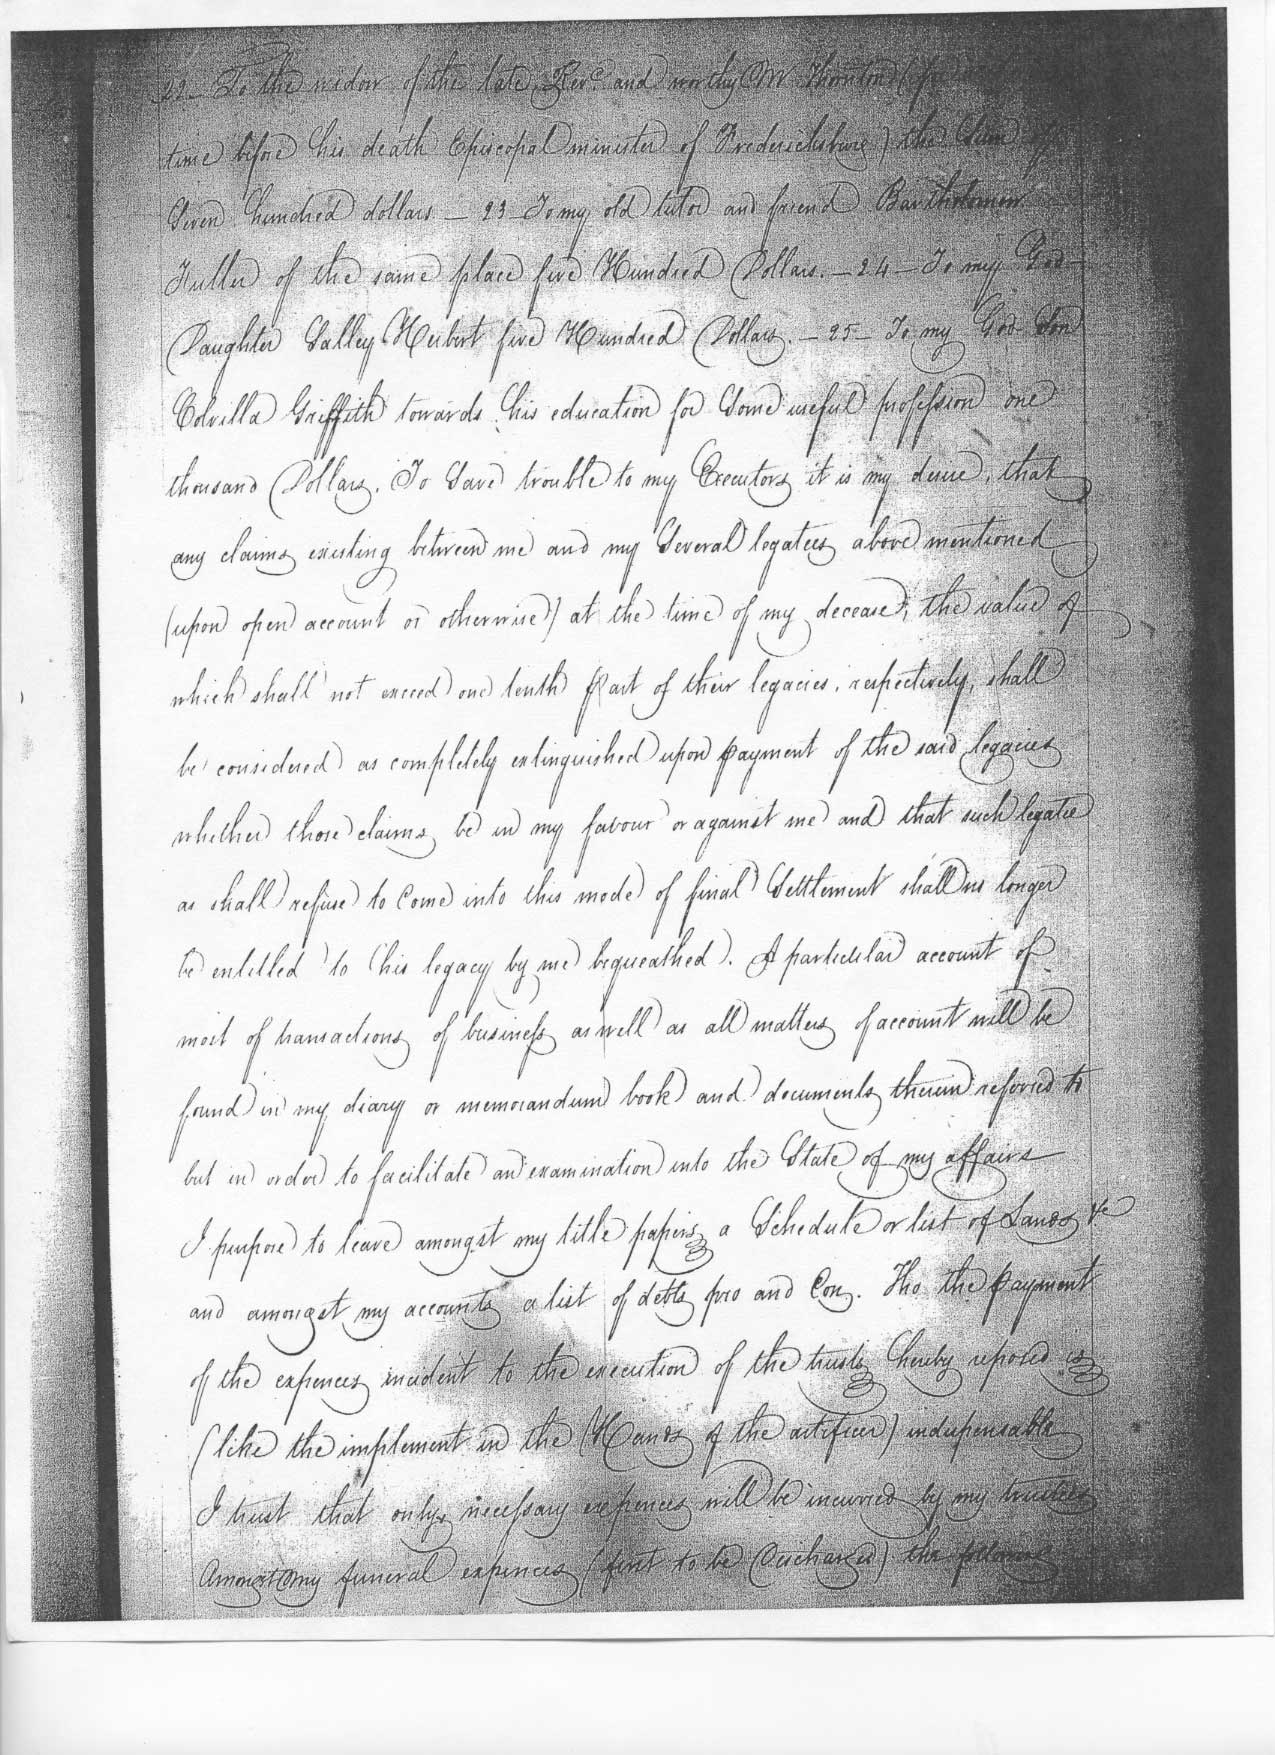 22 – To the widow of the late Revd. and worthy Mr Thornton (for
time before his death Episcopal minister of Fredericksburg) the Sum of
Seven hundred dollars – 23 – To my old tutor and friend Bartholomew
Fuller of the same place five Hundred Dollars. – 24 – To my God-
Daughter Salley Herbert five Hundred Dollars. – 25 – To my God Son
Colvilla Griffith towards his education for Some useful profession one
thousand Dollars. To Save trouble to my Executors it is my desire, that
any claims existing between me and my Several legatees above mentioned
(upon open account or otherwise) at the time of my decease, the value of
which shall not exceed one tenth part of their legacies, respectively, shall
be considered as completely extinguished upon payment of the said legacies
whether those claims be in my favour or against me and that such legatee
as shall refuse to Come into this mode of final Settlement shall no longer
be entitled to his legacy by me bequeathed. A particular account of
most of transactions of business as well as all matters of account will be
found in my diary or memorandum book and documents therein referred to
but in order to facilitate an examination into the State of my affairs
I purpose to leave amongst my title papers a Schedule or list of Lands &c
and amongst my accounts a list of debts pro and Con. Tho the payment
of the expences incident to the execution of the trusts hereby reposed is
(like the implement in the Hands of the artificer) indispensable
I trust that only necessary expences will be incurred by my trustees
Amongst my funeral expences (first to be Discharged) the following